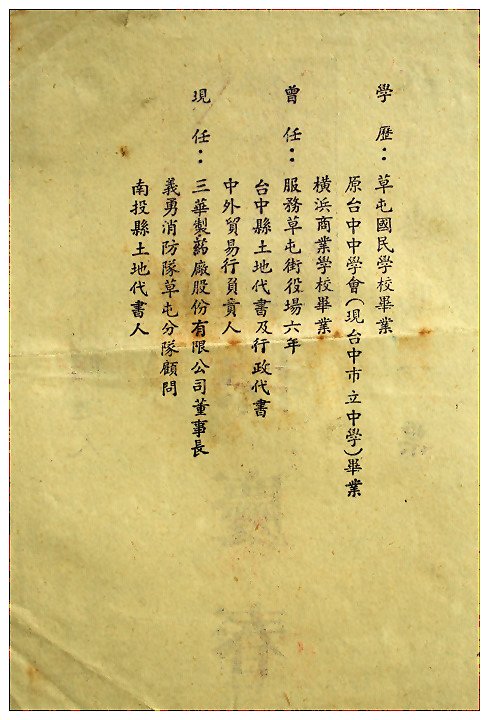 學歷：草屯國民學校畢業
原台中中學會（現台中市立中學）畢業
橫浜商業學校畢業
曾任：服務草屯街役場六年
台中縣土地代書及行政代書
中外貿易行負責人
現任：三華製葯廠股份有限公司董事長
義勇消防隊草屯分隊顧問
南投縣土地代書人